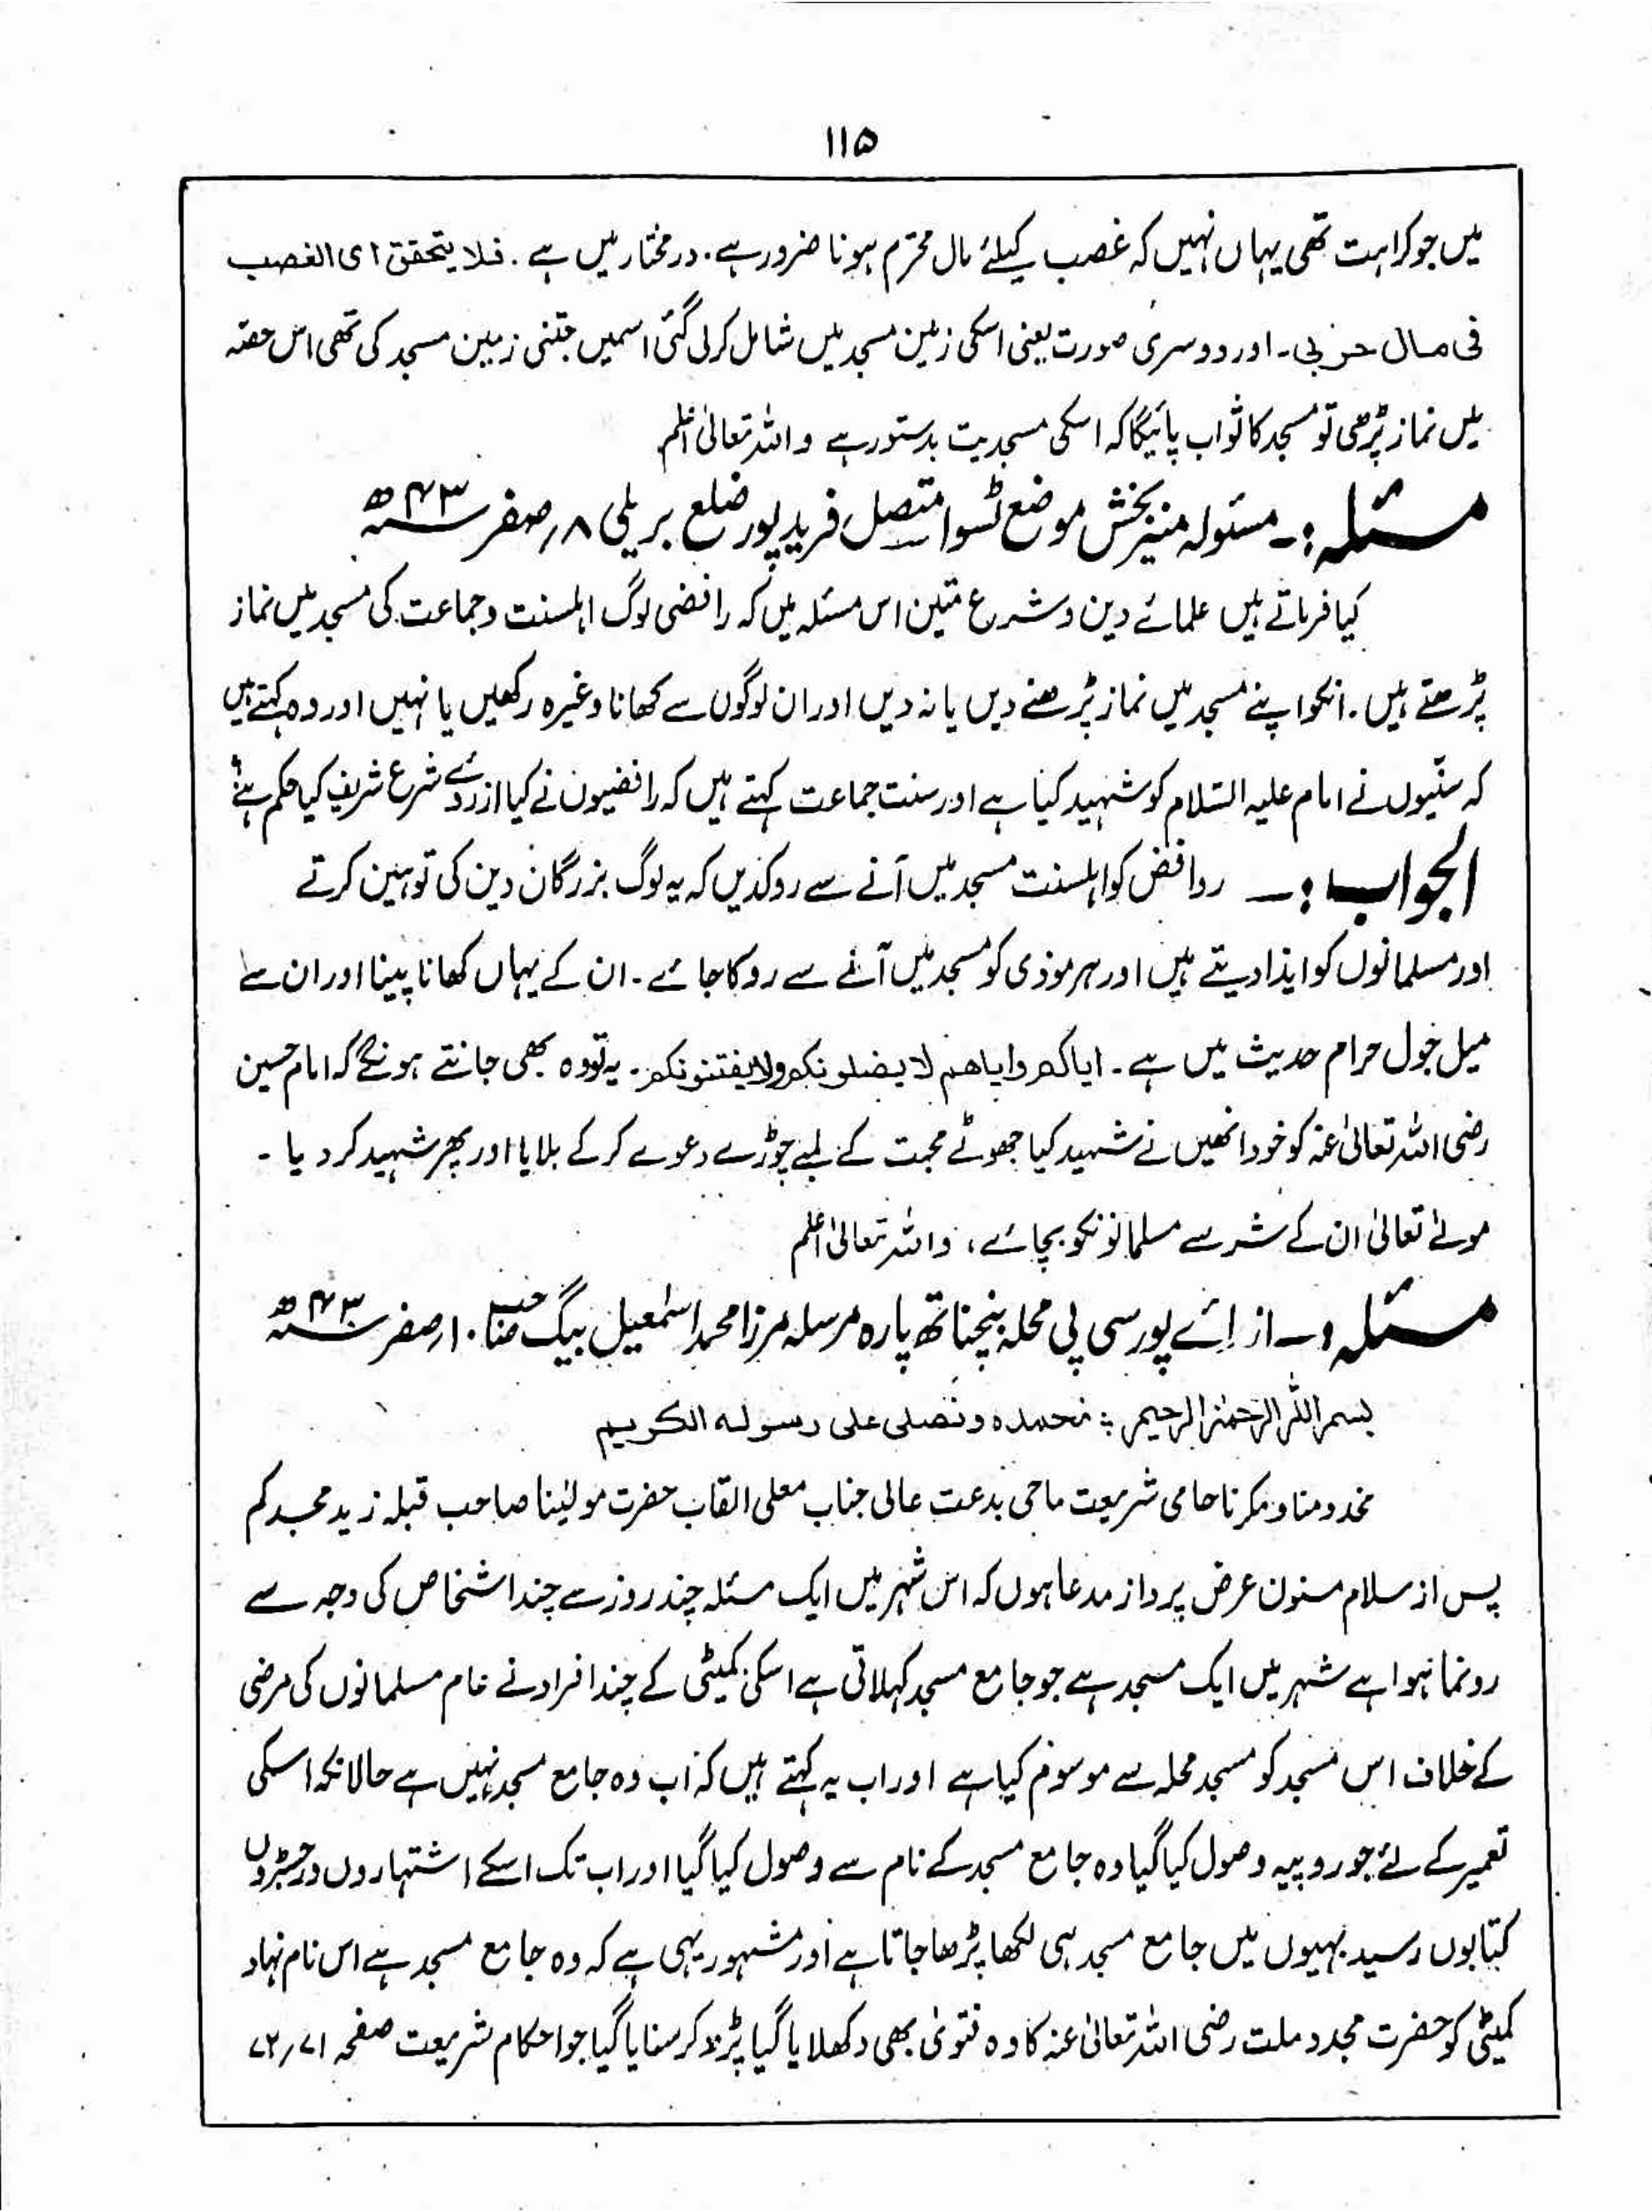 ۱۱۵
میں جو کراہت تھی یہاں نہیں کہ غصب کیلئے مال محترم ہونا ضرور ہے۔ درمختار میں ہے۔ فلا یتحقق ای الغصب
فی مال حربی۔ اور دوسری صورت یعنی اسکی زمین مسجد میں شامل کرلی گئی اسمیں جتنی زمین مسجد کی تھی اس حصہ
میں نماز پڑھی تو مسجد کا ثواب پائیگا کہ اسکی مسجدیت بدستور ہے واللہ تعالیٰ اعلم
مسئلہ :۔ مسئولہ منیر بخش موضع ٹسوا متصل فرید پور ضلع بریلی ۸؍ صفر ۴۳ھ
کیا فرماتے ہیں علمائے دین و شرع متین اس مسئلہ میں کہ رافضی لوگ اہلسنت وجماعت کی مسجد میں نماز
پڑھتے ہیں۔ انکو اپنے مسجد میں نماز پڑھنے دیں یا نہ دیں اور ان لوگوں سے کھانا وغیرہ رکھیں یا نہیں اور وہ کہتے ہیں
کہ سنّیوں نے امام علیہ السّلام کو شہید کیا ہے اور سنت جماعت کہتے ہیں کہ رافضیوں نے کیا ازروئے شرع شریف کیا حکم ہے؟
الجواب :۔ روافض کو اہلسنت مسجد میں آنے سے روکدیں کہ یہ لوگ بزرگان دین کی توہین کرتے
اور مسلمانوں کو ایذا دیتے ہیں اور ہر موذی کو مسجد میں آنے سے روکا جائے۔ ان کے یہاں کھانا پینا اور ان سے
میل جول حرام حدیث میں ہے۔ ایاکم وایاھم لا یضلونکم ولا یفتنونکم۔ یہ تو وہ بھی جانتے ہونگے کہ امام حسین
رضی اللہ تعالیٰ عنہ کو خود انھیں نے شہید کیا جھوٹے محبت کے لمبے چوڑے دعوے کر کے بلایا اور پھر شہید کر دیا ۔
مولےٰ تعالیٰ ان کے شر سے مسلمانونکو بچائے، واللہ تعالیٰ اعلم
مسئلہ :۔ از رائے پور سی پی محلہ بیجناتھ پارہ مرسلہ مرزا محمد اسمٰعیل بیگ صاحب ۱۰؍ صفر ۴۳ھ
بسم اللہ الرحمٰن الرحیم ؛ نحمدہ ونصلی علی رسولہ الکریم
مخدومنا ومکرمنا حامی شریعت ماحی بدعت عالی جناب معلی القاب حضرت مولیٰنا صاحب قبلہ زید مجدکم
پس از سلام مسنون عرض پرداز مدعا ہوں کہ اس شہر میں ایک مسئلہ چند روز سے چند اشخاص کی وجہ سے
رونما ہوا ہے شہر میں ایک مسجد ہے جو جامع مسجد کہلاتی ہے اسکی کمیٹی کے چند افراد نے عام مسلمانوں کی مرضی
کے خلاف اس مسجد کو مسجد محلہ سے موسوم کیا ہے اور اب یہ کہتے ہیں کہ اب وہ جامع مسجد نہیں ہے حالانکہ اسکی
تعمیر کے لئے جو روپیہ وصول کیا گیا وہ جامع مسجد کے نام سے وصول کیا گیا اور اب تک اسکے اشتہاروں ورجسٹروں
کتابوں رسید بہیوں میں جامع مسجد ہی لکھا پڑھا جاتا ہے اور مشہور یہی ہے کہ وہ جامع مسجد ہے اس نام نہاد
کمیٹی کو حضرت مجدد ملت رضی اللہ تعالیٰ عنہ کا وہ فتویٰ بھی دکھلایا گیا پڑھکر سنایا گیا جو احکام شریعت صفحہ ۷۱؍۷۲